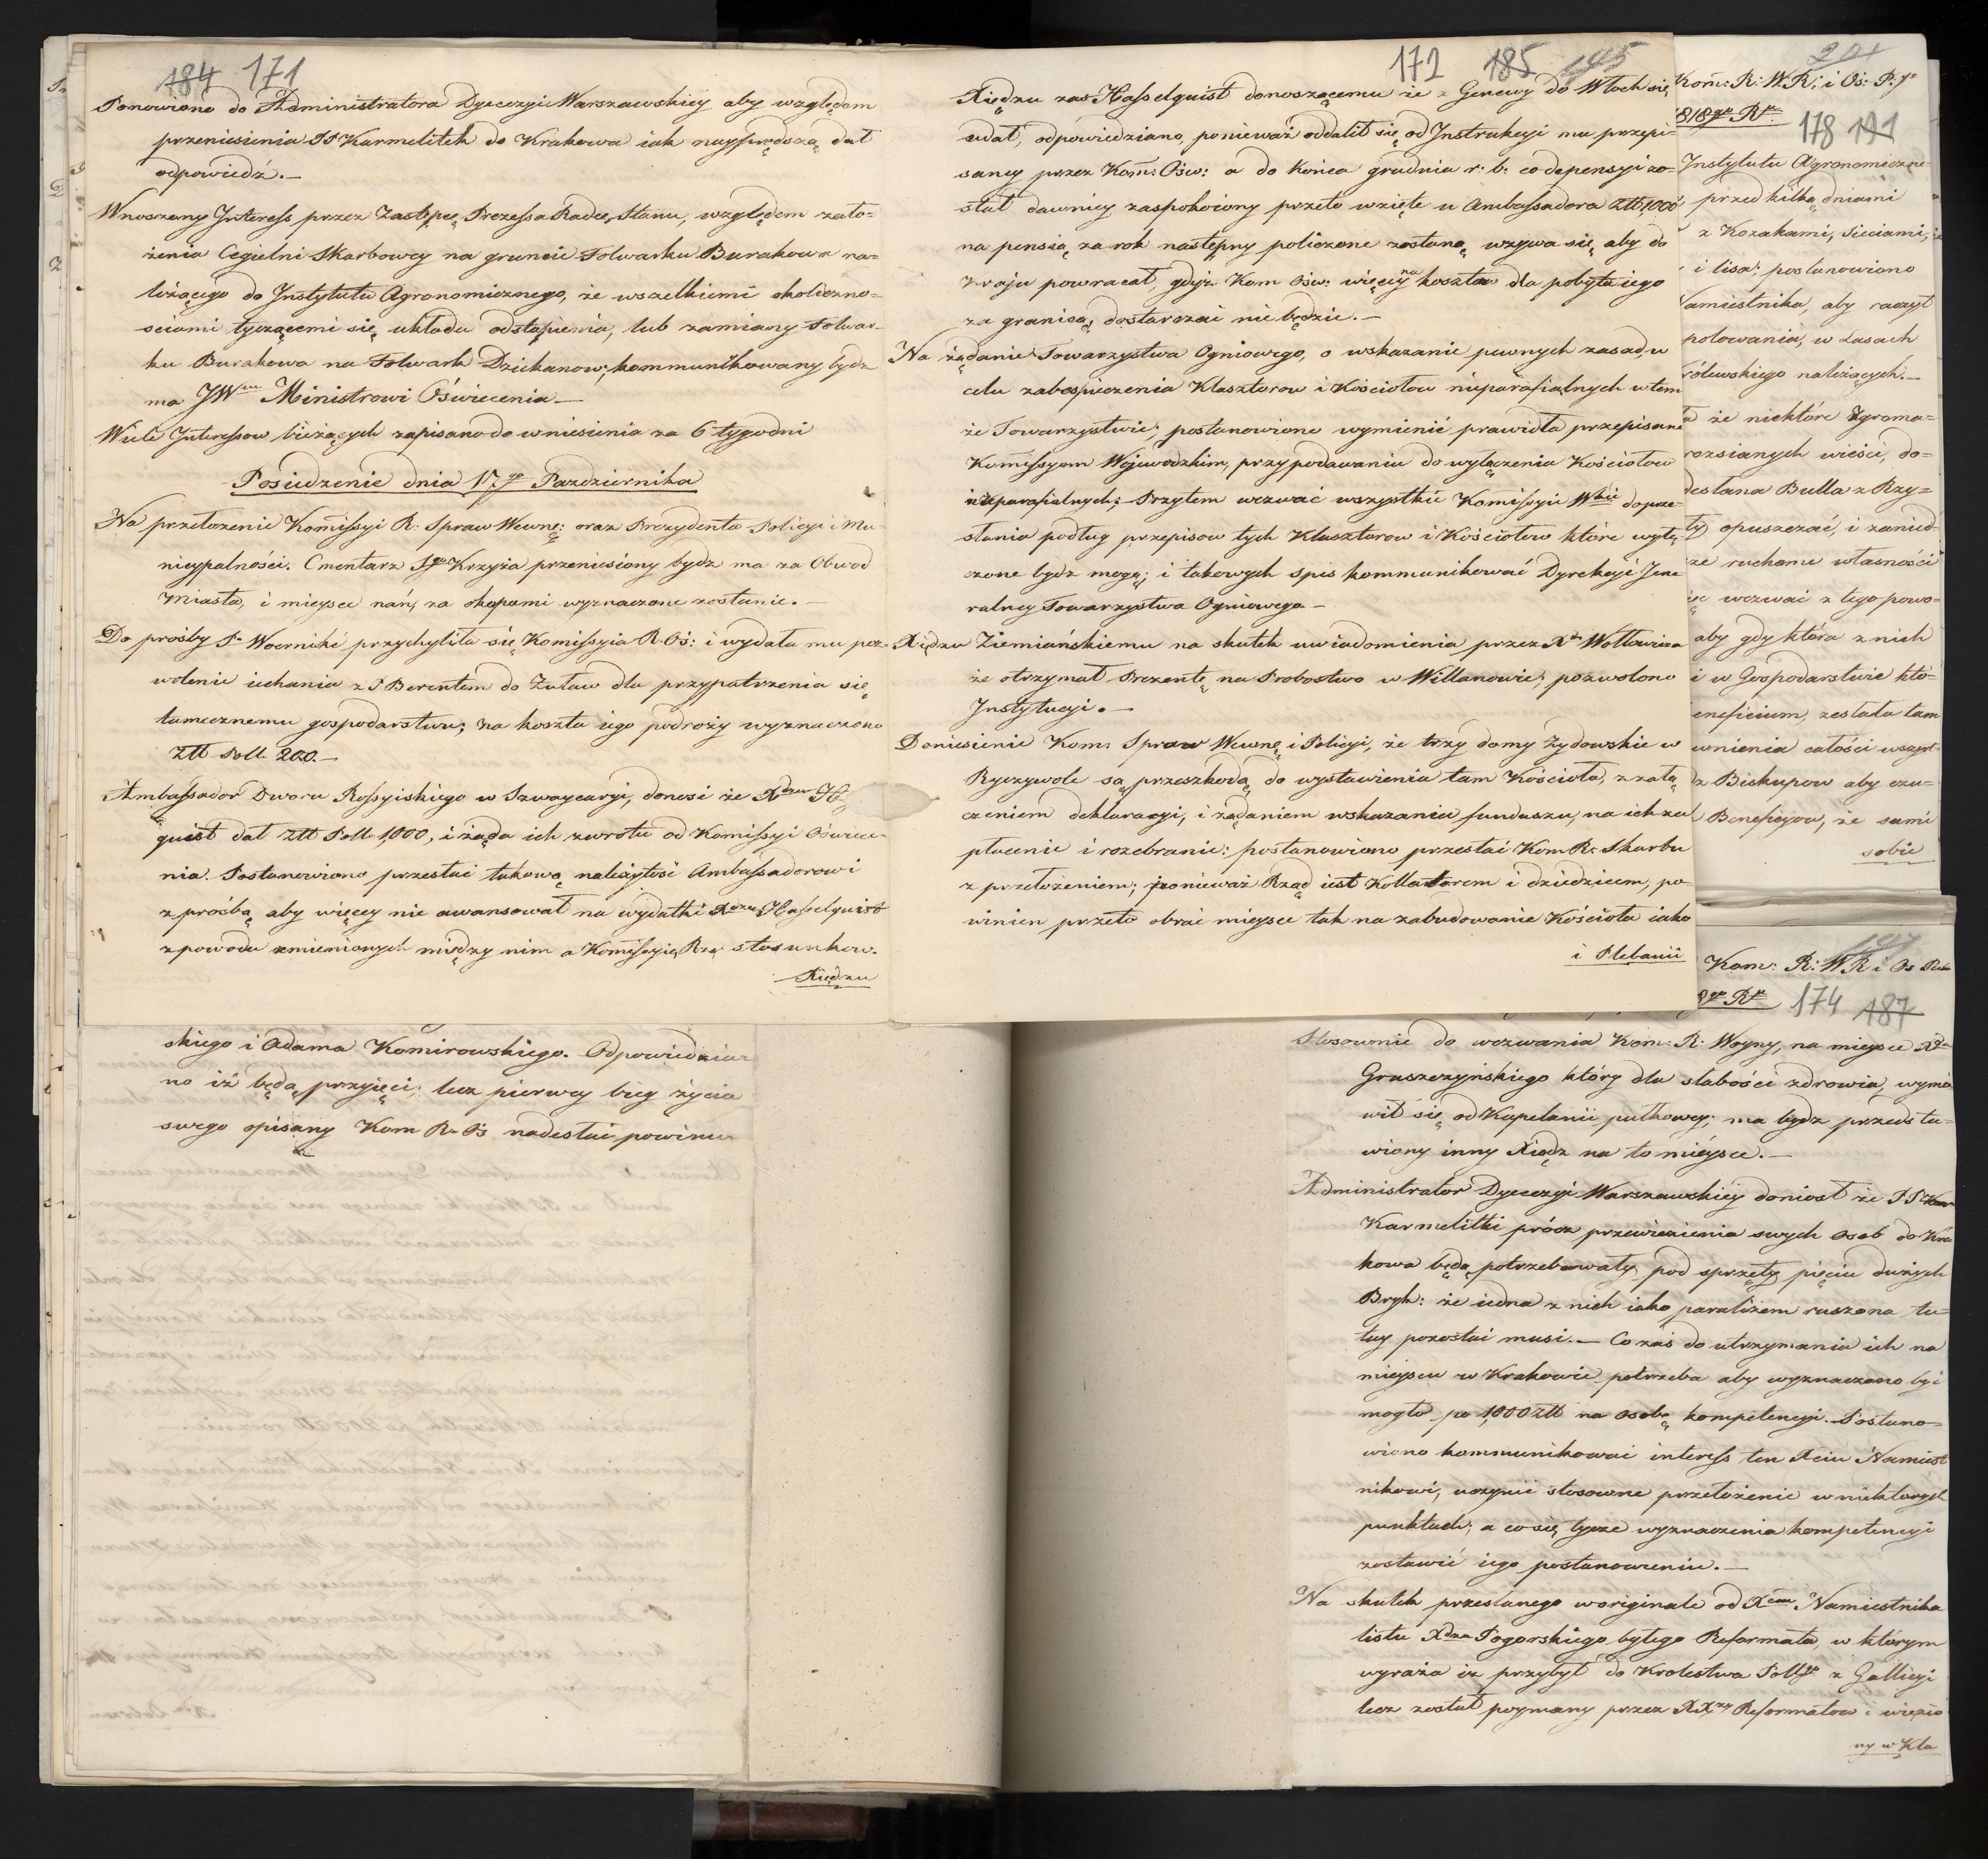 184 171
Ponowiono do Administratora Dyecezyi Warszawskiey aby względem
przeniesienia PP Karmelitek do Krakowa iak nayprędszą dał
odpowiedź.—
Wnoszony Interess przez Zastępcę Prezessa Radcę Stanu, względem zało-
żenia Cegielni Skarbowey na gruncie Folwarku Burakowa na-
leżącego do Instytutu Agronomicznego, że wszelkiemi okoliczno-
ściami tyczącemi się układu odstąpienia, lub zamiany Folwar-
ku Burakowa na Folwark Dziekanow; kommunikowany bydz
ma JWmu Ministrowi Oświecenia—
Wiele Interessow bieżących zapisano do wniesienia za 6 tygodni
Posiedzenie dnia 17go Pazdziernika
Na przełożenie Kommissyi R: Spraw Wewnę: oraz Prezydenta Policyi i Mu-
nicypalności. Cmentarz Sgo Krzyża przeniesiony bydz ma za Obwod
Miasta, i mieysce nań za okopami wyznaczone zostanie.—
Do prośby P. Woernike przychyliła się Kommissyia R. Oś: i wydała mu poz-
wolenie iechania z P Berentem do Żuław dla przypatrzenia się
tamecznemu gospodarstwu; na koszta iego podroży wyznaczono
Złł Poll 200.—
Ambassador Dworu Rossyiskiego w Szwaycaryi, donosi że Xdzu
quist dał Złł Poll 1,000, i żąda ich zwrotu od Komissyi Oświece-
nia. Postanowiono przesłać takową należytość Ambassadorowi
z prośbą aby więcey nie awansował na wydatki Xdzu Hasselquist
z powodu zmienionych między nim a Kommissyią Rzą: stosunkow.
Xiędzu
172 185 195
Xiędzu zas Hasselquist donoszącemu że z Genewy do Włoch się
udał, odpowiedziano, ponieważ oddalił się od Instrukcyi mu przepi-
saney przez Kom: Ośw: a do końca grudnia r: b: co do pensyi zo-
stał dawniey zaspokoiony przeto wzięte u Ambassadora Złł 1,000
na pensią za rok następny policzone zostaną wzywa się aby do
kraju powracał, gdyż Kom Ośw: więcey na koszta dla pobytu iego
za granicą dostarczać nie będzie.—
Na żądanie Towarzystwa Ogniowego, o wskazanie pewnych zasad w
celu zabespieczenia Klasztorow i Kościołow nieparafialnych w tem
że Towarzystwie; postanowiono wymienić prawidła przepisane
Kommissyom Wojewodzkim, przy podawaniu do wyłączenia Kościołow
nieparafialnych; Przytem wezwać wszystkie Komissyie Wkie do prze-
słania podług przepisow tych Klasztorow i Kościołow które wyłą-
czone bydz mogą; i takowych spis kommunikować Dyrekcyi Jene
ralney Towarzystwa Ogniowego—
Xiędzu Ziemiańskiemu na skutek uwiadomienia przez Xdza Wołłowicza
że otrzymał Prezentę na Probostwo w Willanowie; pozwolono
Instytucyi.—
Doniesienie Kom: Spraw Wewnę i Policyi, że trzy domy żydowskie w
Ryczywole są przeszkodą do wystawienia tam Kościoła, z załą
czeniem deklaracyi, i żądaniem wskazania funduszu, na ich za
płacenie i rozebranie: postanowiono przesłać Kom R: Skarbu
z przełożeniem; ponieważ Rząd iest Kollatorem i dziedzicem, po-
winien przeto obrać mieysce tak na zabudowanie Kościoła iako
i Plebanii
Kom: R: W. R: i Oś: P: go
818go Rku
178 191
Instytutu Agronomiczne-
przed kilką dniami
z Kozakami, sieciami,
i lisa; postanowiono
Namiestnika, aby raczył
polowania, w Lasach
rólewskiego należących.—
że niektóre Zgroma-
rozsianych wieści, do-
desłana Bulla z Rzy-
opuszczać, i zanied-
że ruchome własności
wezwać z tego powo-
aby gdy która z nich
i w Gospodarstwie któ-
eneficium, została tam
wnienia całości wszyst-
Biskupow aby czu-
Beneficyow, że sami
sobie
skiego i Adama Komirowskiego. Odpowiedzia-
no iż będą przyjęci; lecz pierwey bieg życia
swego opisany Kom R. Oś nadesłać powinni
Kom: R: W R i Oś
8go Rku 174 187
Stosownie do wezwania Kom: R: Woyny, na mieysce Xdza
Gruszczyńskiego który dla słabości zdrowia, wymó
wił się od Kapelanii pułkowey; ma bydz przedsta-
wiony inny Xiądz na to mieysce.—
Administrator Dyecezyi Warszawskiey doniosł że PP
Karmelitki prócz przewiezienia swych osob do Kra
kowa będą potrzebowały pod sprzęty pięciu dużych
Bryk: że iedna z nich iako paraliżem ruszona tu-
tay pozostać musi.— Co zaś do utrzymania ich na
mieyscu w Krakowie potrzeba aby wyznaczono być
mogło po 1,000 złł na osobę kompetencyi. Postano-
wiono kommunikować interess ten Xciu Namiest
nikowi, uczynić stosowne przełożenie w niektorych
punktach; a co się tycze wyznaczenia kompetencyi
zostawić iego postanowieniu.—
Na skutek przesłanego w originale od Xcia Namiestnika
listu Xdza Pogorskiego byłego Reformata, w którym
wyraża iż przybył do Krolestwa Pollgo z Gallicyi
lecz został poymany przez XXży Reformatow i więzio
ny w Kla